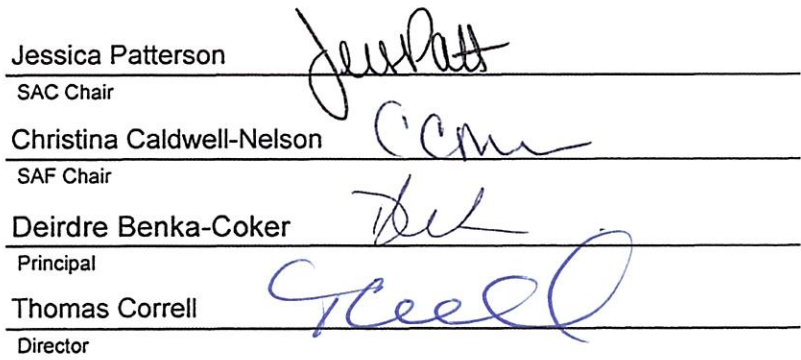 Jessica Patterson
SAC Chair
Christina Caldwell-Nelson
SAF Chair
Deirdre Benka-Coker
Principal
Thomas Correll
Director